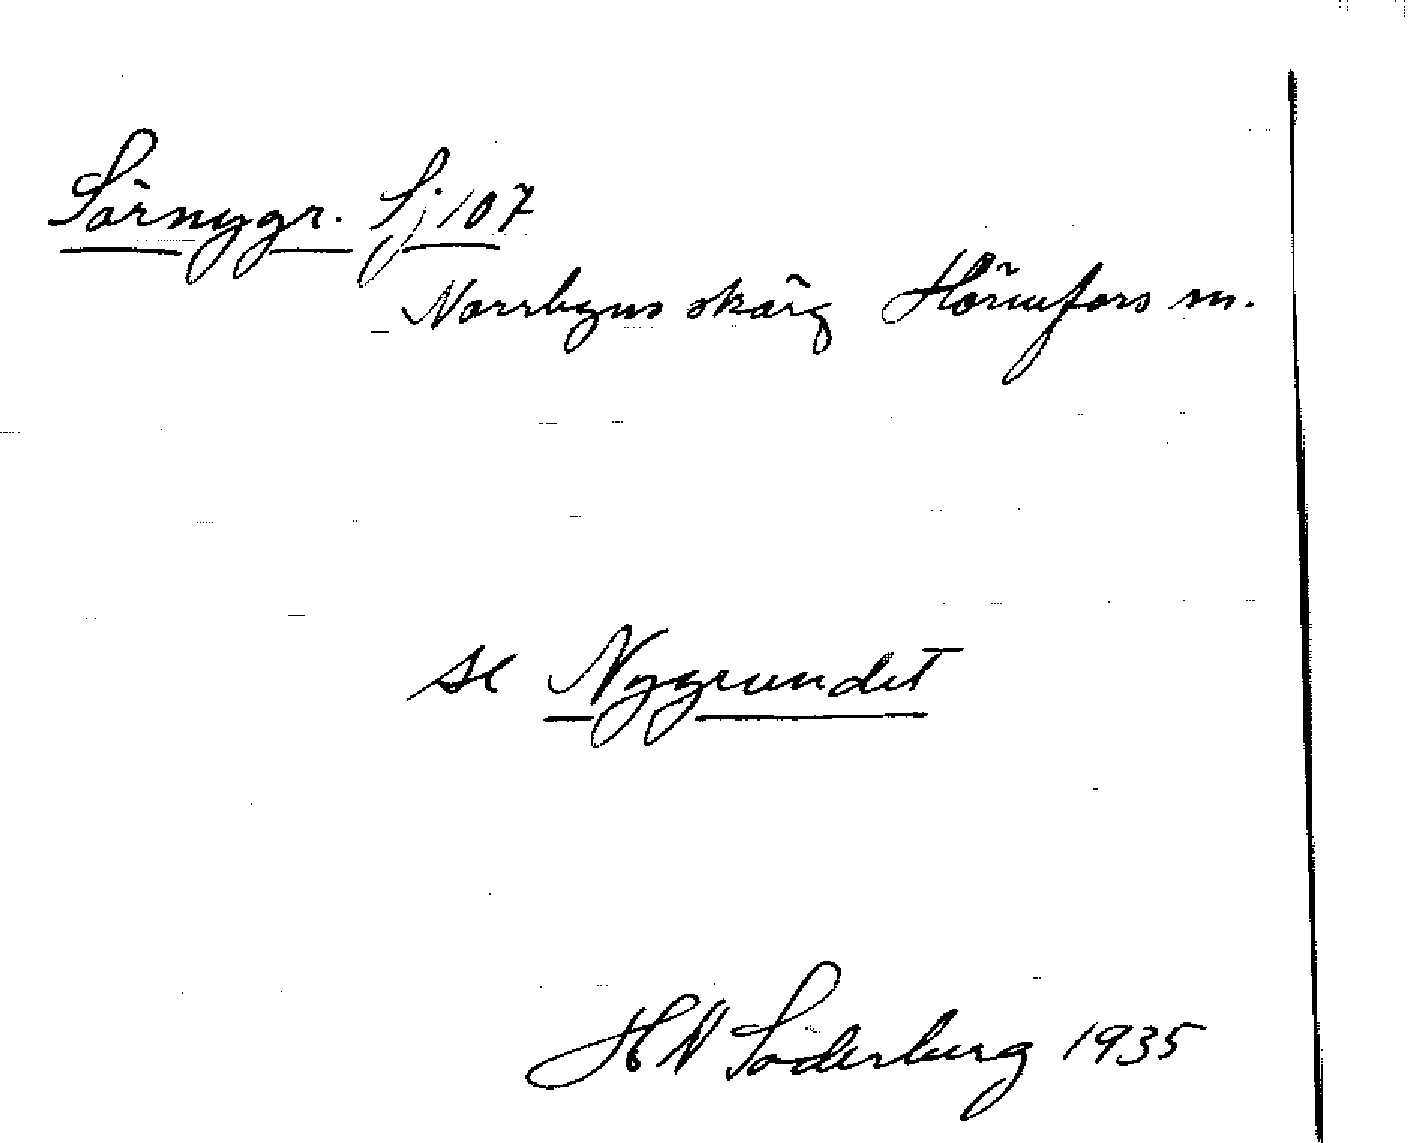 Sörnygr. Sj 107
Norrbyns skärg Hörnefors sn.
se Nygrundet
H N Söderberg 1935